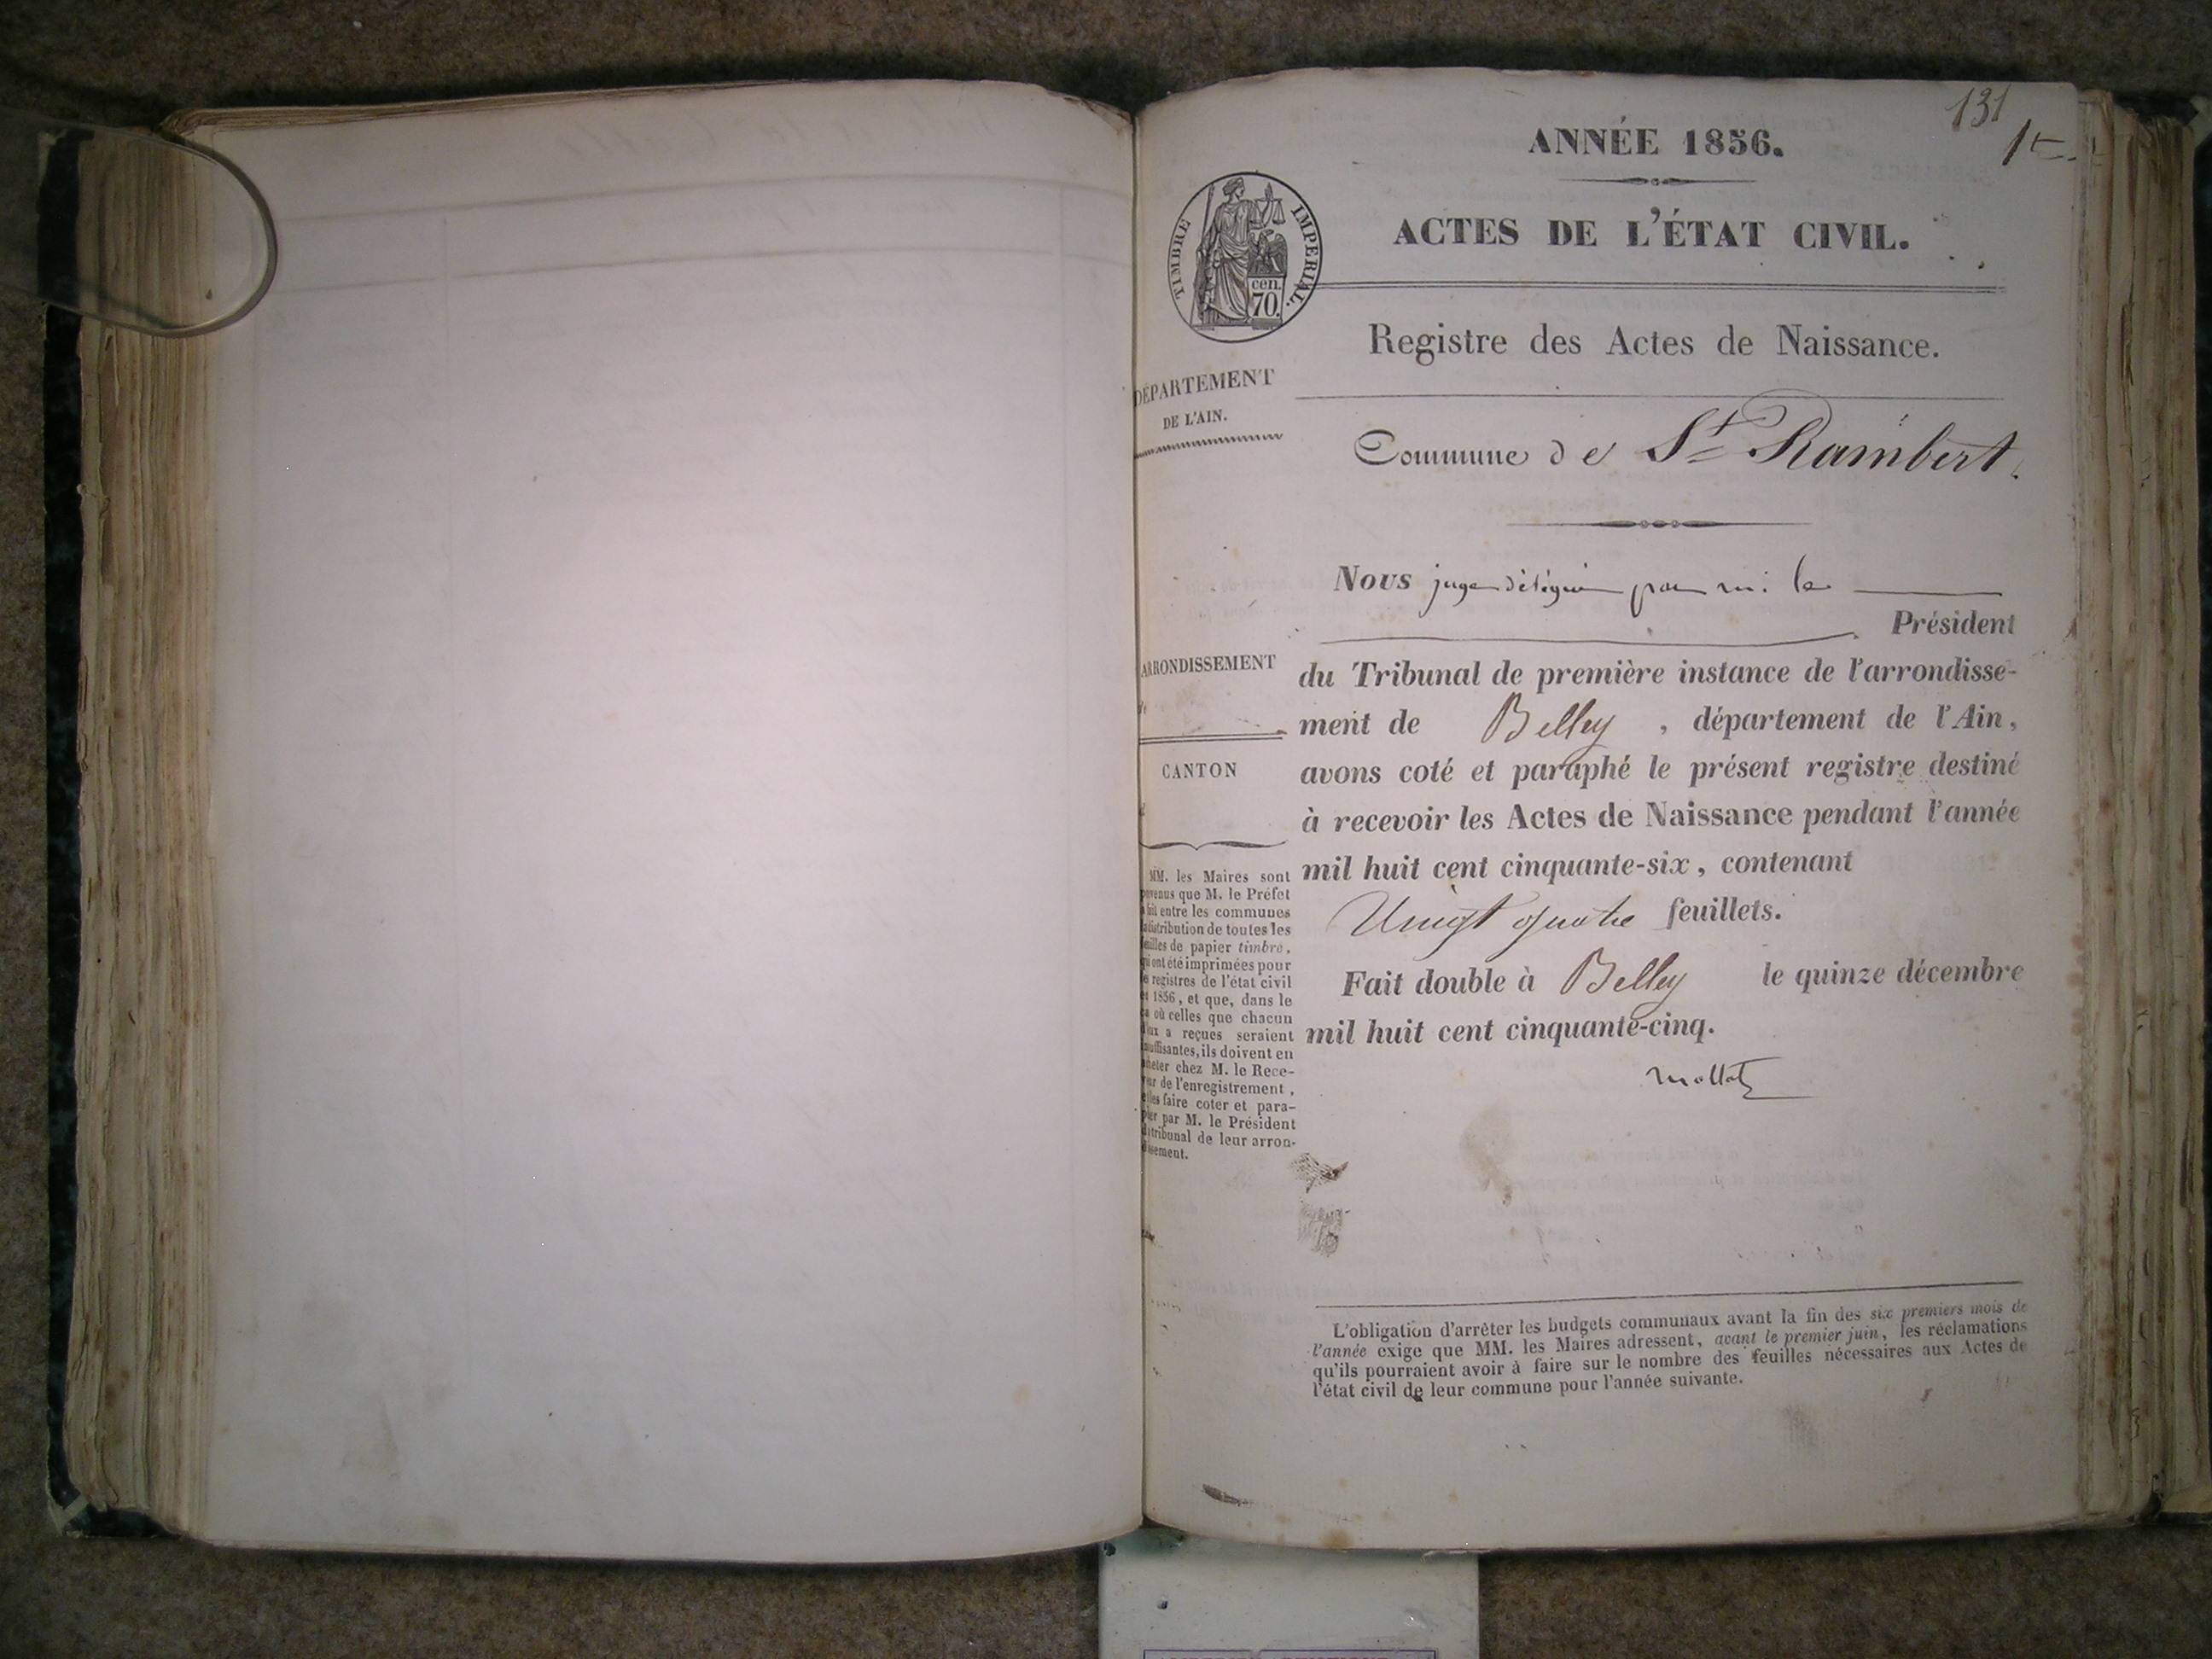 131
ANNÉE 1856.
ACTES DE L'ÉTAT CIVIL.
TIMBRE IMPERIAL.
cen.
70.
Registre des Actes de Naissance.
DÉPARTEMENT
DE L'AIN.
Commune de St Rambert.
Nous juge délégué par m. le
Président
ARRONDISSEMENT
du Tribunal de première instance de l'arrondisse-
ment de Belley, département de l'Ain,
CANTON
avons coté et paraphé le présent registre destiné
à recevoir les Actes de Naissance pendant l'année
mil huit cent cinquante-six, contenant
Vingt quatre feuillets.
Fait double à Belley le quinze décembre
mil huit cent cinquante-cinq.
MM. les Maires sont
que M. le Préfet
fait entre les communes
distribution de toutes les
de papier timbré,
ont été imprimées pour
registres de l'état civil
1856, et que, dans le
où celles que chacun
a reçues seraient
ils doivent en
chez M. le Rece-
de l'enregistrement,
faire coter et para-
par M. le Président
tribunal de leur arron-
L'obligation d'arrêter les budgets communaux avant la fin des six premiers mois de
l'année exige que MM. les Maires adressent, avant le premier juin, les réclamations
qu'ils pourraient avoir à faire sur le nombre des feuilles nécessaires aux Actes de
l'état civil de leur commune pour l'année suivante.